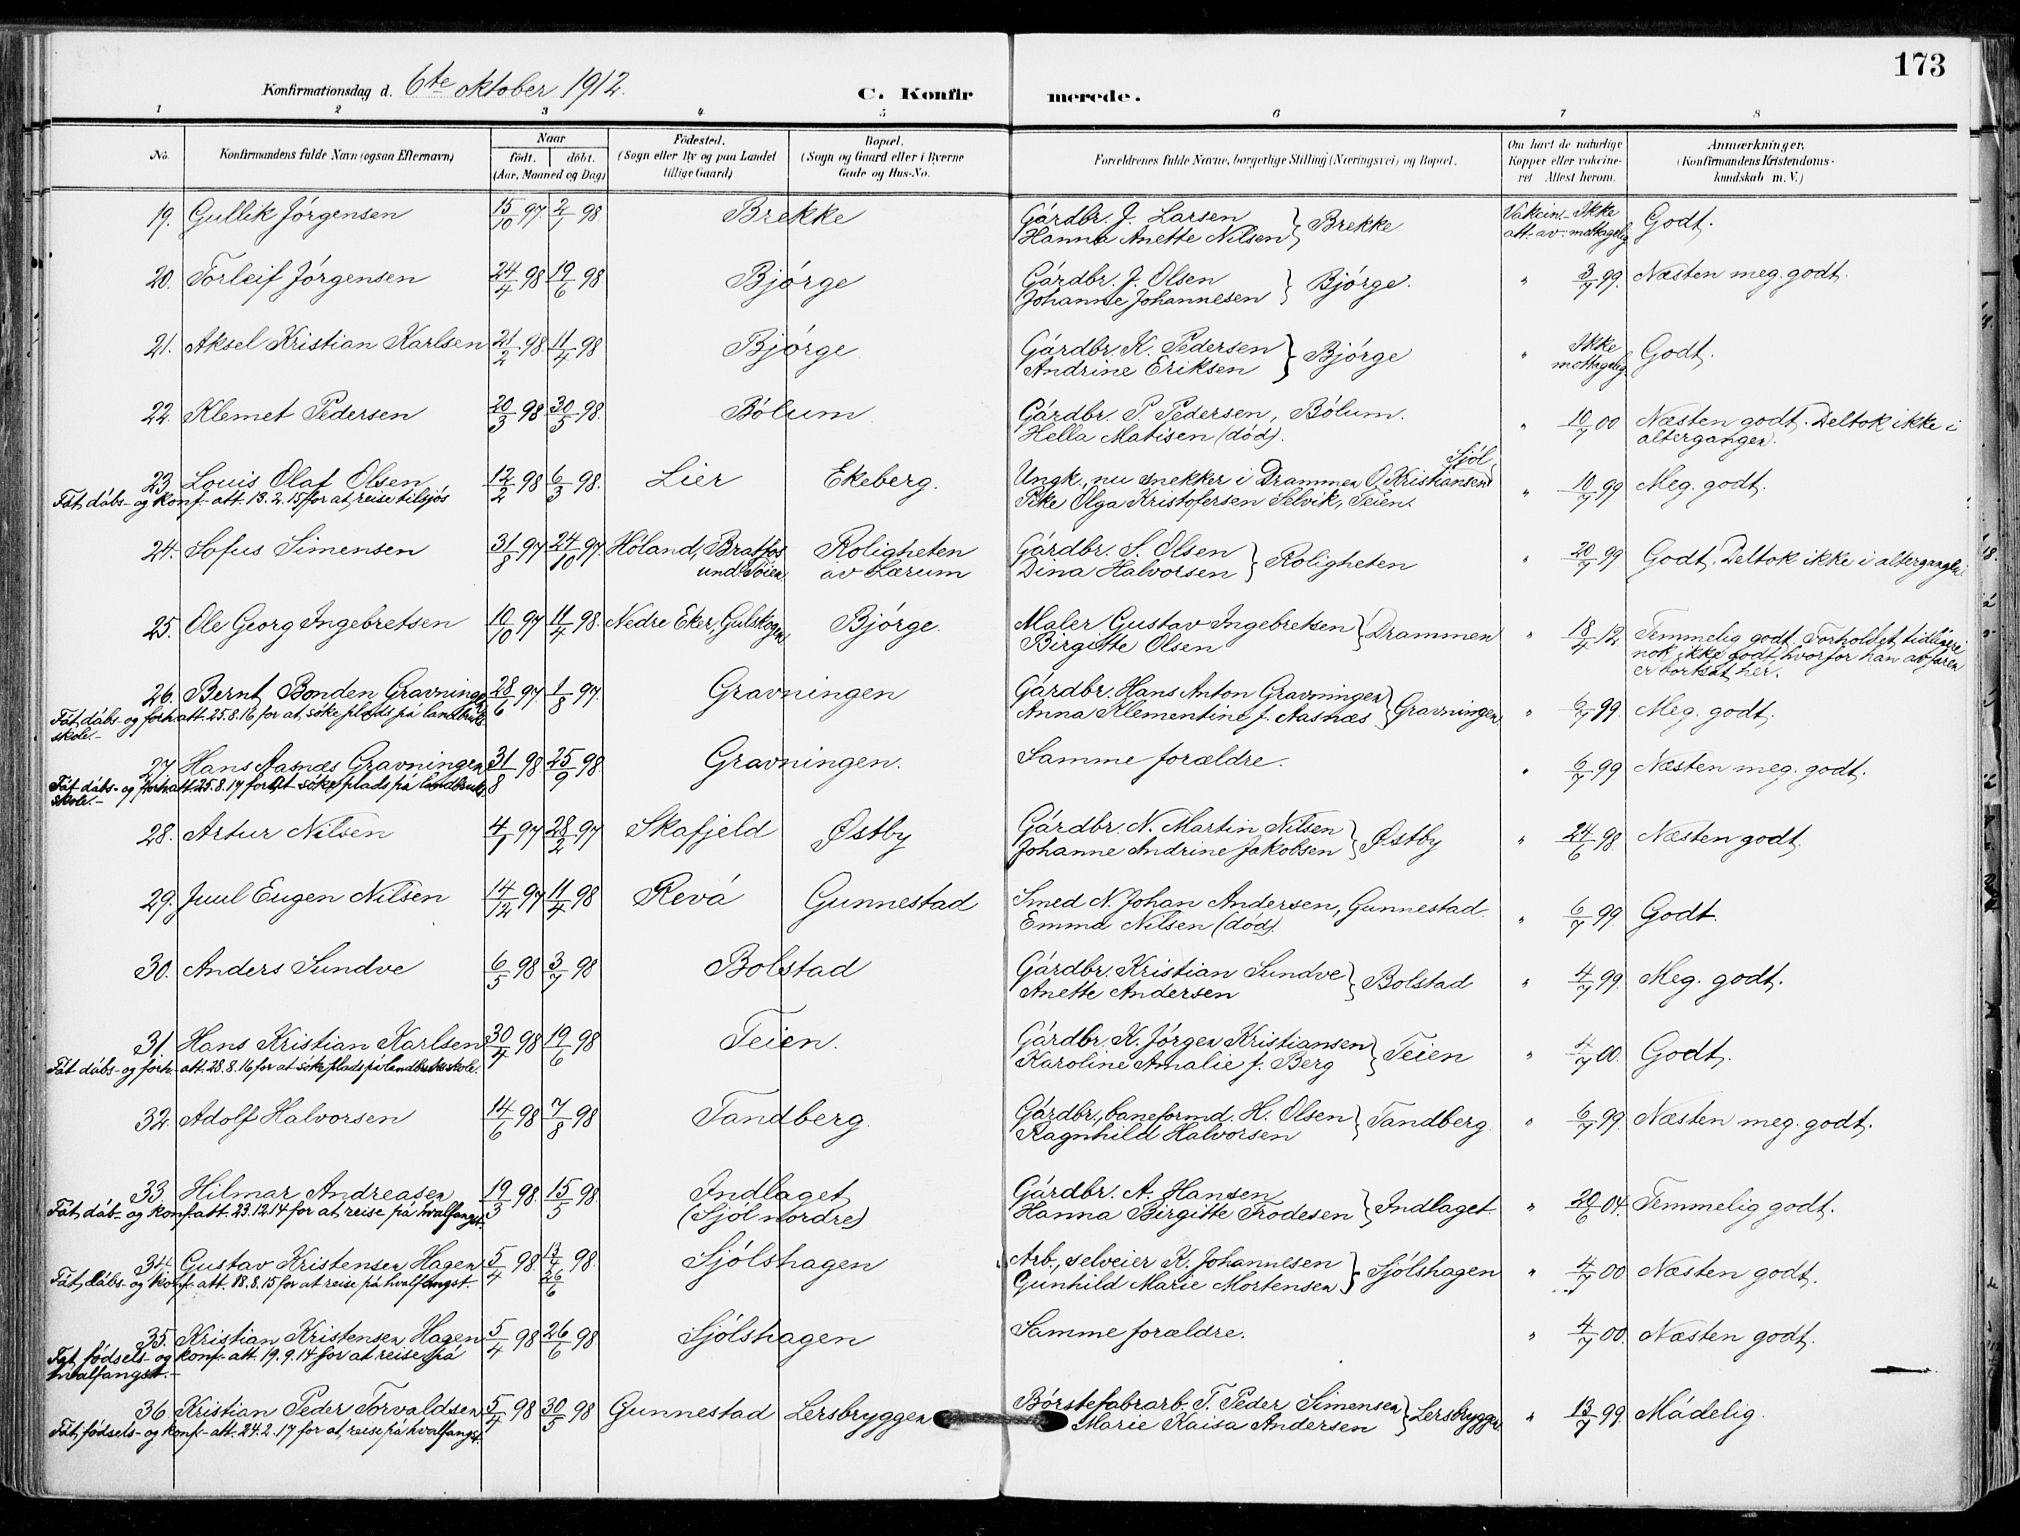 173
Konfirmationsdag d. 6te oktober 1912. C. Konfirmerede.
1 2 3 4 5 6 7 8
No. Konfirmandens fulde Navn (ogsaa Efternavn) Naar født. døbt. (Aar, Maaned og Dag) Fødested. (Sogn eller By og paa Landet tillige Gaard) Bopæl. (Sogn og Gaard eller i Byerne Gade og Hus-No. Forældrenes fulde Navne, borgerlige Stilling (Næringsvei) og Bopæl. Om havt de naturlige Kopper eller vakcineret. Attest herom. Anmærkninger. (Konfirmandens Kristendomskundskab m. V.)
19. Gullik Jörgensen 15/10 97 2/1 98 Brekke Gårdbr. J. Larsen } Brekke Vakcin.- Ikke Godt.
Hanna Anette Nilsen att. av. mottagelig
20. Torleif Jörgensen 24/4 98 19/6 98 Bjórge Gårdbr. J. Olsen } Bjórge. " 3/7 99. Næsten meg. godt.
Johanne Johannesen
21. Aksel Kristian Karlsen 21/2 98. 11/4 98 Bjórge Gårdbr. K. Pedersen } Bjórge " Ikke Godt.
Andrine Eriksen mottagelig.
22. Klemet Pedersen 20/3 98 30/5 98. Bólum Gårdbr. P. Pedersen, Bólum. " 10/7 00 Næsten godt. Deltok ikke i
Hella Matisen (död). altergangen.
23. Louis Olaf Olsen 12/2 98 6/3 98. Lier Ekeberg. Ungk., nu snekker i Drammen O. Kristiansen Sjól " 10/7 99 Meg. godt.
Fåt dåbs- og konf.- att. 13. 2. 15 for at reise tilsjös Pike Olga Kristofersen Selvik, Teien.
24. Sofus Simensen 31/8 97 24/10 97 Höland, Bratfos Roligheten Gårdbr. S. Olsen } Roligheten " 20/7 99 Godt. Deltok ikke i altergangen.
und. Töien av Lærum Dina Halvorsen
25. Ole Georg Ingebretsen 10/10 97 11/4 98. Nedre Eker, Gulskogen Bjórge. Maler Gustav Ingebretsen } Drammen " 18/4 12 Temmelig godt. Forholdet tidligere
Birgitte Olsen nok ikke godt, hvorfor han av faren
er bortsat her.
26. Bernt Bonden Gravningen 28/6 97. 1/8 97. Gravningen Gårdbr. Hans Anton Gravningen } Gravningen " 6/7 99. Meg. godt.
Fåt dåbs- og forh. att. 25. 8. 16 for at söke plads på landbruks- Anna Klementine f. Aasnæs
skole.-
27. Hans Aasnæs Gravningen 31/8 98 25/9 98. Gravningen. Samme forældre. " 6/7 99 Næsten meg. godt.
Fåt dåbs- og forh. att. 25. 8. 17 for at söke plads på landbruks-
skole.-
28. Artur Nilsen 4/1 97 28/2 97 Skafjeld Østby Gårdbr. N. Martin Nilsen } Østby " 24/6 98. Næsten godt.
Johanne Andrine Jakobsen
29. Juul Eugen Nilsen 14/12 97 11/4 98 Revå Gunnestad Smed N. Johan Andersen, Gunnestad. " 6/7 99. Godt.
Emma Nilsen (död).
30. Anders Sundve 6/5 98 3/7 98 Bolstad Gårdbr. Kristian Sundve } Bolstad " 4/7 99. Meg. godt.
Anette Andersen
31. Hans Kristian Karlsen 30/4 98 19/6 98 Teien. Gårdbr. K. Jörgen Kristiansen } Teien " 4/7 00. Godt.
Fåt dåbs- og forh.- att. 28. 8. 16 for at söke plads på landbruksskole. Karoline Amalie f. Berg
32. Adolf Halvorsen 14/6 98 7/8 98 Tandberg. Gårdbr., baneformd. H. Olsen } Tandberg. " 6/7 99. Næsten meg. godt.
Ragnhild Halvorsen
33. Hilmar Andreasen 19/3 98. 15/5 98 Indlaget Gårdbr. A. Hansen } Indlaget. " 20/6 04. Temmelig godt.
Fåt dåb- og konf. att. 23. 12. 14 for at reise på hvalfangst. (Sjól nordre) Hanna Birgitte Frodesen
34. Gustav Kristensen Hagen 5/4 98 13/4 98. Sjólshagen Arb., selveier K. Johannesen } Sjólshagen " 4/7 00 Næsten godt.
Fåt dåbs- og konf. att. 18. 8. 15 for at reise på hvalfangst. 26/6 Gunhild Marie Mortensen
35. Kristian Kristensen Hagen 5/4 98 26/6 98 Sjólshagen Samme forældre. " 4/7 00. Næsten godt.
Fåt fødsels- og konf- att. 19. 9. 14 for at reise på
hvalfangst.-
36 Kristian Peder Torvaldsen 5/4 98 30/5 98 Gunnestad Lersbryggen Börstefabrarb. T. Peder Simensen } Lersbryggen " 13/7 99. Mådelig.
Fåt fødsels- og konf- att. 24. 2. 17 for at reise på hvalfangst. Marie Kaisa Andersen